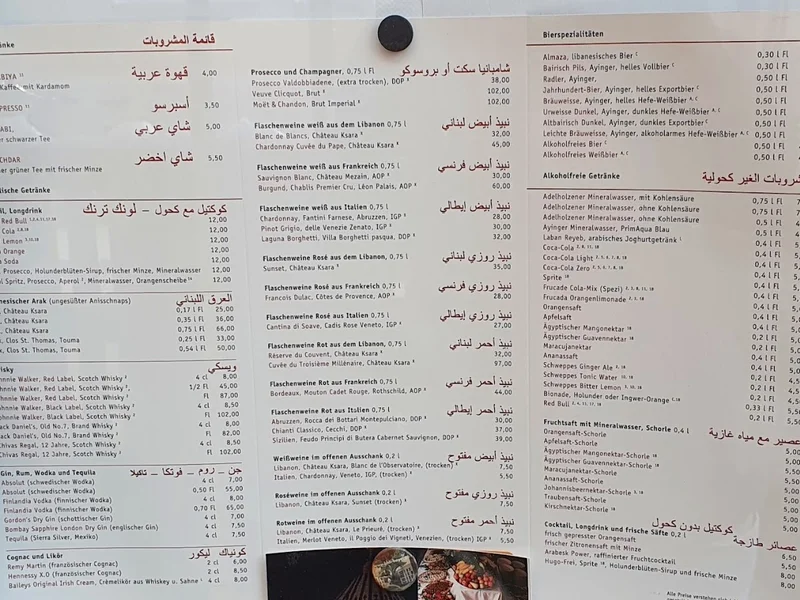 قائمة المشروبات
قهوة عربية 4,00
mit Kardamom
أسبرسو 3,50
شاي عربي 5,00
schwarzer Tee
شاي اخضر 5,50
grüner Tee mit frischer Minze
Getränke
Longdrink كوكتيل مع كحول – لونك ترنك
Red Bull 12,00
Cola 12,00
Lemon 12,00
Orange 12,00
Soda 12,00
Prosecco, Holunderblüten-Sirup, frischer Minze, Mineralwasser 12,00
Spritz, Prosecco, Aperol, Mineralwasser, Orangenscheibe 12,00
Arak (ungesüßter Anisschnaps) العرق اللبناني
Château Ksara 0,17 l Fl 25,00
Château Ksara 0,35 l Fl 36,00
Château Ksara 0,75 l Fl 66,00
Clos St. Thomas, Touma 0,25 l Fl 33,00
Clos St. Thomas, Touma 0,54 l Fl 50,00
ويسكي
Walker, Red Label, Scotch Whisky 4 cl 8,00
Walker, Red Label, Scotch Whisky 1/2 Fl 45,00
Walker, Red Label, Scotch Whisky Fl 87,00
Walker, Black Label, Scotch Whisky 4 cl 8,50
Walker, Black Label, Scotch Whisky Fl 102,00
Jack Daniel's, Old No.7, Brand Whisky 4 cl 8,00
Jack Daniel's, Old No.7, Brand Whisky Fl 82,00
Chivas Regal, 12 Jahre, Scotch Whisky 4 cl 8,50
Chivas Regal, 12 Jahre, Scotch Whisky Fl 102,00
Gin, Rum, Wodka und Tequila جن – روم – فوتكا – تاكيلا
Absolut (schwedischer Wodka) 4 cl 7,00
Absolut (schwedischer Wodka) 0,50 l Fl 55,00
Finlandia Vodka (finnischer Wodka) 4 cl 8,00
Finlandia Vodka (finnischer Wodka) 0,70 l Fl 65,00
Gordon's Dry Gin (schottischer Gin) 4 cl 7,00
Bombay Sapphire London Dry Gin (englischer Gin) 4 cl 7,50
Tequila (Sierra Silver, Mexiko) 4 cl 7,50
Cognac und Likör كونياك ليكور
Remy Martin (französischer Cognac) 2 cl 6,00
Hennessy X.O (französischer Cognac) 2 cl 8,50
Baileys Original Irish Cream, Crèmelikör aus Whiskey u. Sahne 4 cl 8,00
Prosecco und Champagner, 0,75 l Fl شامبانيا سكت أو بروسوكو
Prosecco Valdobbiadene, (extra trocken), DOP 38,00
Veuve Clicquot, Brut 102,00
Moët & Chandon, Brut Imperial 102,00
Flaschenweine weiß aus dem Libanon 0,75 l نبيذ أبيض لبناني
Blanc de Blancs, Château Ksara 32,00
Chardonnay Cuvée du Pape, Château Ksara 45,00
Flaschenweine weiß aus Frankreich 0,75 l نبيذ أبيض فرنسي
Sauvignon Blanc, Château Mezain, AOP 30,00
Burgund, Chablis Premier Cru, Léon Palais, AOP 60,00
Flaschenweine weiß aus Italien 0,75 l نبيذ أبيض إيطالي
Chardonnay, Fantini Farnese, Abruzzen, IGP 28,00
Pinot Grigio, delle Venezie Zenato, IGP 30,00
Laguna Borghetti, Villa Borghetti pasqua, DOP 32,00
Flaschenweine Rosé aus dem Libanon, 0,75 l نبيذ روزي لبناني
Sunset, Château Ksara 35,00
Flaschenweine Rosé aus Frankreich 0,75 l نبيذ روزي فرنسي
Francois Dulac, Côtes de Provence, AOP 28,00
Flaschenweine Rosé aus Italien 0,75 l نبيذ روزي إيطالي
Cantina di Soave, Cadis Rose Veneto, IGP 27,00
Flaschenweine Rot aus dem Libanon 0,75 l نبيذ أحمر لبناني
Réserve du Couvent, Château Ksara 32,00
Cuvée du Troisième Millénaire, Château Ksara 97,00
Flaschenweine Rot aus Frankreich 0,75 l نبيذ أحمر فرنسي
Bordeaux, Mouton Cadet Rouge, Rothschild, AOP 44,00
Flaschenweine Rot aus Italien 0,75 l نبيذ أحمر إيطالي
Abruzzen, Rocca dei Bottari Montepulciano, DOP 30,00
Chianti Classico, Cecchi, DOP 37,00
Sizilien, Feudo Principi di Butera Cabernet Sauvignon, DOP 39,00
Weißweine im offenen Ausschank 0,2 l نبيذ أبيض مفتوح
Libanon, Château Ksara, Blanc de L'Observatoire, (trocken) 7,50
Italien, Chardonnay, Veneto, IGP, (trocken) 5,50
Roséweine im offenen Ausschank 0,2 l نبيذ روزي مفتوح
Libanon, Château Ksara, Sunset (trocken) 7,50
Rotweine im offenen Ausschank 0,2 l نبيذ أحمر مفتوح
Libanon, Château Ksara, Le Prieuré, (trocken) 7,50
Italien, Merlot Veneto, il Poggio dei Vigneti, Venezien, (trocken) IGP 5,50
Bierspezialitäten
Almaza, libanesisches Bier 0,30 l Fl
Bairisch Pils, Ayinger, helles Vollbier 0,30 l Fl
Radler, Ayinger, 0,50 l Fl
Jahrhundert-Bier, Ayinger, helles Exportbier 0,50 l Fl
Bräuweisse, Ayinger, helles Hefe-Weißbier 0,50 l Fl
Urweisse Dunkel, Ayinger, dunkles Hefe-Weißbier 0,50 l Fl
Altbairisch Dunkel, Ayinger, dunkles Exportbier 0,50 l Fl
Leichte Bräuweisse, Ayinger, alkoholarmes Hefe-Weißbier 0,50 l Fl
Alkoholfreies Bier 0,50 l Fl
Alkoholfreies Weißbier 0,50 l Fl
Alkoholfreie Getränke الغير كحولية
Adelholzener Mineralwasser, mit Kohlensäure 0,75 l Fl
Adelholzener Mineralwasser, ohne Kohlensäure 0,75 l Fl
Adelholzener Mineralwasser, ohne Kohlensäure
Ayinger Mineralwasser, PrimAqua Blau
Laban Reyeb, arabisches Joghurtgetränk
Coca-Cola
Coca-Cola Light
Coca-Cola Zero
Sprite
Frucade Cola-Mix (Spezi)
Frucade Orangenlimonade
Orangensaft
Apfelsaft
Ägyptischer Mangonektar
Ägyptischer Guavennektar
Maracujanektar
Ananassaft
Schweppes Ginger Ale
Schweppes Tonic Water
Schweppes Bitter Lemon
Bionade, Holunder oder Ingwer-Orange
Red Bull
Fruchtsaft mit Mineralwasser, Schorle 0,4 l عصير مع مياه غازية
Orangensaft-Schorle
Apfelsaft-Schorle
Ägyptischer Mangonektar-Schorle
Ägyptischer Guavennektar-Schorle
Maracujanektar-Schorle
Ananassaft-Schorle
Johannisbeernektar-Schorle
Traubensaft-Schorle
Kirschnektar-Schorle
Cocktail, Longdrink und frische Säfte 0,2 l كوكتيل بدون كحول عصائر طازجة
frisch gepresster Orangensaft
frischer Zitronensaft mit Minze
Arabesk Power, raffinierter Fruchtcocktail
Hugo-Frei, Sprite, Holunderblüten-Sirup und frische Minze
Alle Preise verstehen sich